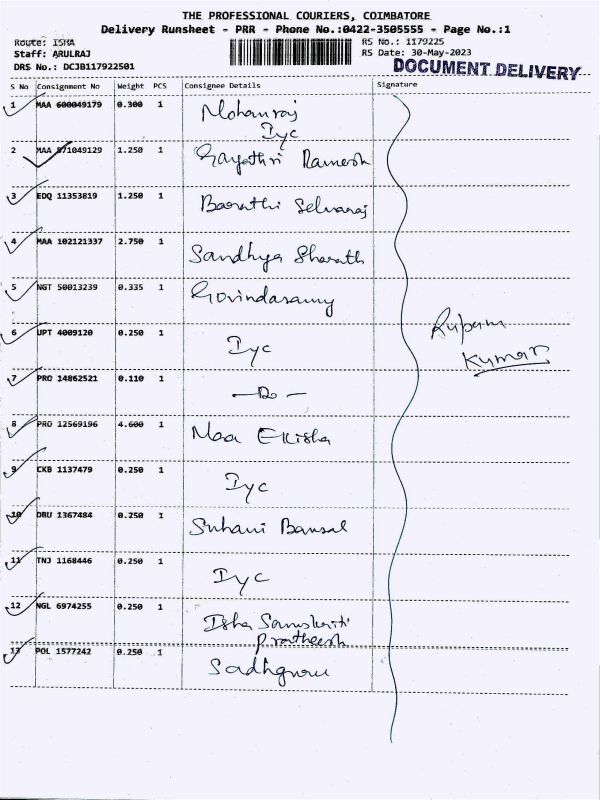 THE PROFESSIONAL COURIERS, COIMBATORE
Delivery Runsheet - PRR - Phone No.:0422-3505555 - Page No.:1
Route: ISHA
Staff: ARULRAJ
DRS No.: DCJB117922501
RS No.: 1179225
RS Date: 30-May-2023
DOCUMENT DELIVERY
S No Consignment No Weight PCS Consignee Details Signature
1 MAA 600049179 0.300 1 Mohanraj
Iyc
2 MAA 571049129 1.250 1 Gayathri Ramesh
3 EDQ 11353819 1.250 1 Barathi Selvaraj
4 MAA 102121337 2.750 1 Sandhya Sharath
5 NGT 50013239 0.335 1 Govindasamy
6 UPT 4009120 0.250 1 Iyc
Rupam
Kumar
7 PRO 14862521 0.110 1 —Do—
8 PRO 12569196 4.600 1 Maa Ekisha
9 CKB 1137479 0.250 1 Iyc
10 DRU 1367484 0.250 1 Suhani Bansal
11 TNJ 1168446 0.250 1 Iyc
12 NGL 6974255 0.250 1 Isha Samskriti
Pratheesh
13 POL 1577242 0.250 1 Sadhguru